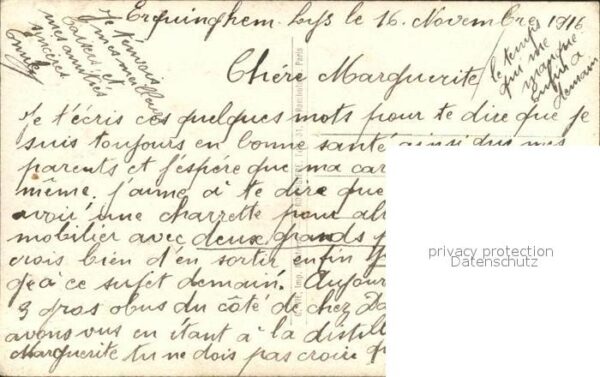 Erquinghem-Lys le 16 Novembre 1916
Chère Marguerite
Je t'écris ces quelques mots pour te dire que je
suis toujours en bonne santé ainsi que mes
parents et j'espère que ma car
même. j'aime à te dire que
avoir une charrette pour
mobilier avec deux grands
crois bien d'en sortir enfin
à ce sujet demain. Aujour
3 gros obus du côté de chez
avons vus en étant à la distill
Marguerite tu ne dois pas croire
le temps
qui me
manque
enfin à
demain
Je t'envois
mes meilleurs
baisers et
mes amitiés
sincères
privacy protection
Datenschutz